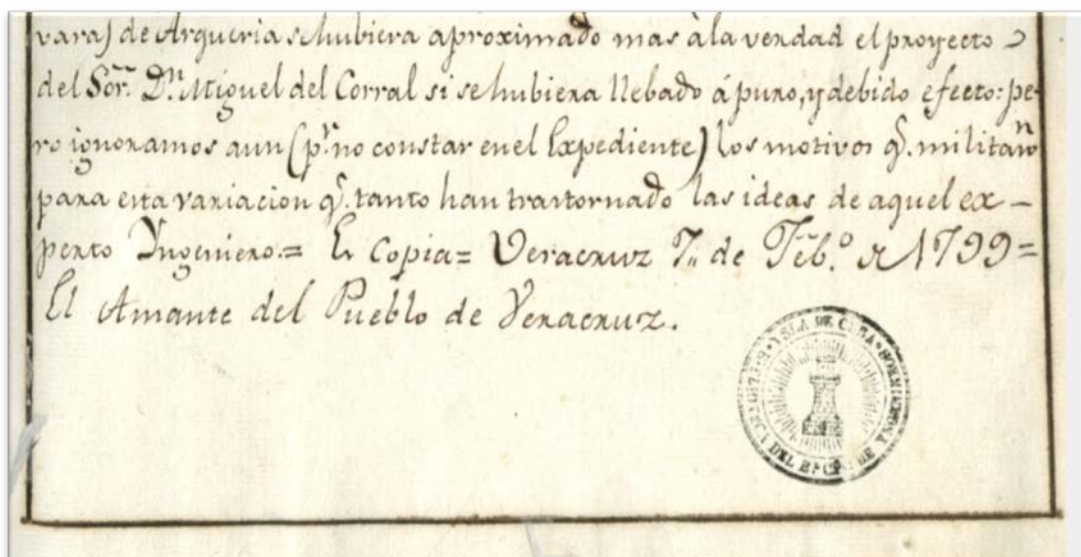 varas) de Arqueria se hubiera aproximado mas à la verdad el proyecto
del Sor. Dn. Miguel del Corral si se hubiera llebado á puro, y debido efecto: pe-
ro ignoramos aun (pr. no constar en el Expediente) los motivos q. militaron
para esta variacion q. tanto han trastornado las ideas de aquel ex-
perto Yngeniero.= Es Copia= Veracruz 7,, de Feb.o de 1799=
El Amante del Pueblo de Veracruz.
YSLA DE CUBA
DEL